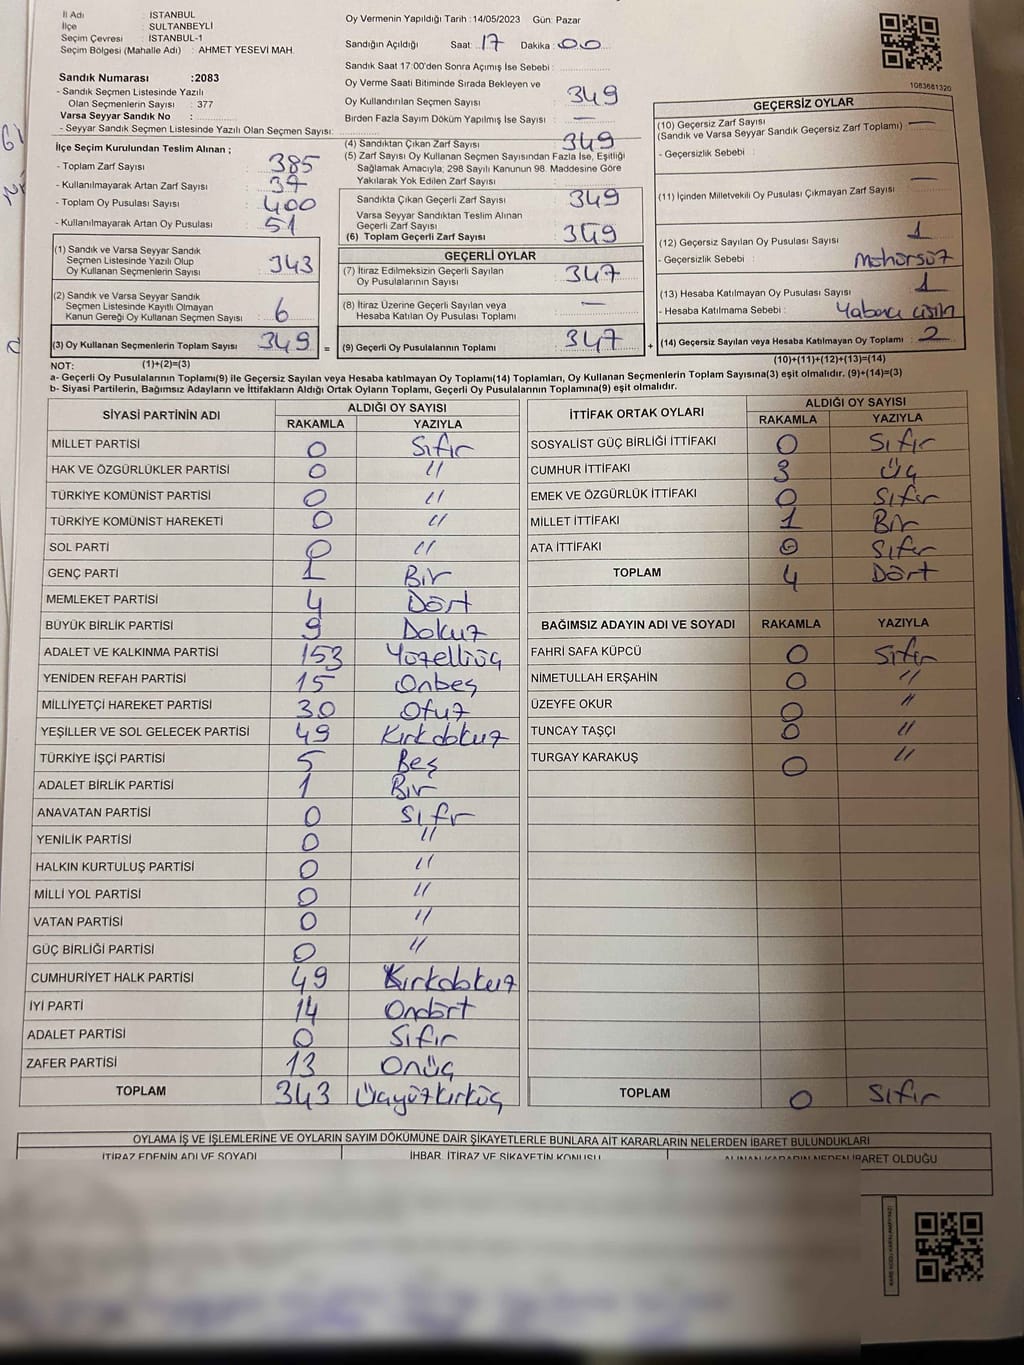 İl Adı : İSTANBUL
İlçe : SULTANBEYLİ
Seçim Çevresi : İSTANBUL-1
Seçim Bölgesi (Mahalle Adı) : AHMET YESEVİ MAH.
Sandık Numarası :2083
- Sandık Seçmen Listesinde Yazılı
Olan Seçmenlerin Sayısı : 377
Varsa Seyyar Sandık No :
- Seyyar Sandık Seçmen Listesinde Yazılı Olan Seçmen Sayısı:
İlçe Seçim Kurulundan Teslim Alınan ;
- Toplam Zarf Sayısı : 385
- Kullanılmayarak Artan Zarf Sayısı : 37
- Toplam Oy Pusulası Sayısı : 400
- Kullanılmayarak Artan Oy Pusulası : 51
(1) Sandık ve Varsa Seyyar Sandık
Seçmen Listesinde Yazılı Olup
Oy Kullanan Seçmenlerin Sayısı : 343
(2) Sandık ve Varsa Seyyar Sandık
Seçmen Listesinde Kayıtlı Olmayan
Kanun Gereği Oy Kullanan Seçmen Sayısı : 6
(3) Oy Kullanan Seçmenlerin Toplam Sayısı : 349 =
Oy Vermenin Yapıldığı Tarih : 14/05/2023 Gün: Pazar
Sandığın Açıldığı Saat: 17 Dakika : 00
Sandık Saat 17:00'den Sonra Açımış İse Sebebi :
Oy Verme Saati Bitiminde Sırada Bekleyen ve
Oy Kullandırılan Seçmen Sayısı : 349
Birden Fazla Sayım Döküm Yapılmış İse Sayısı : —
(4) Sandıktan Çıkan Zarf Sayısı : 349
(5) Zarf Sayısı Oy Kullanan Seçmen Sayısından Fazla İse, Eşitliği
Sağlamak Amacıyla; 298 Sayılı Kanunun 98. Maddesine Göre
Yakılarak Yok Edilen Zarf Sayısı :
Sandıkta Çıkan Geçerli Zarf Sayısı : 349
Varsa Seyyar Sandıktan Teslim Alınan
Geçerli Zarf Sayısı :
(6) Toplam Geçerli Zarf Sayısı : 349
GEÇERLİ OYLAR
(7) İtiraz Edilmeksizin Geçerli Sayılan
Oy Pusulalarının Sayısı : 347
(8) İtiraz Üzerine Geçerli Sayılan veya
Hesaba Katılan Oy Pusulalarının Toplamı : —
(9) Geçerli Oy Pusulalarının Toplamı : 347 +
1083681320
GEÇERSİZ OYLAR
(10) Geçersiz Zarf Sayısı : —
(Sandık ve Varsa Seyyar Sandık Geçersiz Zarf Toplamı)
- Geçersizlik Sebebi :
(11) İçinden Milletvekili Oy Pusulası Çıkmayan Zarf Sayısı : —
(12) Geçersiz Sayılan Oy Pusulası Sayısı : 1
- Geçersizlik Sebebi : Mühürsüz
(13) Hesaba Katılmayan Oy Pusulası Sayısı : 1
- Hesaba Katılmama Sebebi : Yabancı cisim
(14) Geçersiz Sayılan veya Hesaba Katılmayan Oy Toplamı : 2
NOT: (1)+(2)=(3) (10)+(11)+(12)+(13)=(14)
a- Geçerli Oy Pusulalarının Toplamı(9) ile Geçersiz Sayılan veya Hesaba katılmayan Oy Toplamı(14) Toplamları, Oy Kullanan Seçmenlerin Toplam Sayısına(3) eşit olmalıdır. (9)+(14)=(3)
b- Siyasi Partilerin, Bağımsız Adayların ve İttifakların Aldığı Ortak Oyların Toplamı, Geçerli Oy Pusulalarının Toplamına(9) eşit olmalıdır.
SİYASİ PARTİNİN ADI ALDIĞI OY SAYISI
RAKAMLA YAZIYLA
MİLLET PARTİSİ 0 Sıfır
HAK VE ÖZGÜRLÜKLER PARTİSİ 0 "
TÜRKİYE KOMÜNİST PARTİSİ 0 "
TÜRKİYE KOMÜNİST HAREKETİ 0 "
SOL PARTİ 0 "
GENÇ PARTİ 1 Bir
MEMLEKET PARTİSİ 4 Dört
BÜYÜK BİRLİK PARTİSİ 9 Dokuz
ADALET VE KALKINMA PARTİSİ 153 Yüzelliüç
YENİDEN REFAH PARTİSİ 15 Onbeş
MİLLİYETÇİ HAREKET PARTİSİ 30 Otuz
YEŞİLLER VE SOL GELECEK PARTİSİ 49 Kırkdokuz
TÜRKİYE İŞÇİ PARTİSİ 5 Beş
ADALET BİRLİK PARTİSİ 1 Bir
ANAVATAN PARTİSİ 0 Sıfır
YENİLİK PARTİSİ 0 "
HALKIN KURTULUŞ PARTİSİ 0 "
MİLLİ YOL PARTİSİ 0 "
VATAN PARTİSİ 0 "
GÜÇ BİRLİĞİ PARTİSİ 0 "
CUMHURİYET HALK PARTİSİ 49 Kırkdokuz
İYİ PARTİ 14 Ondört
ADALET PARTİSİ 0 Sıfır
ZAFER PARTİSİ 13 Onüç
TOPLAM 343 Üçyüzkırküç
İTTİFAK ORTAK OYLARI ALDIĞI OY SAYISI
RAKAMLA YAZIYLA
SOSYALİST GÜÇ BİRLİĞİ İTTİFAKI 0 Sıfır
CUMHUR İTTİFAKI 3 Üç
EMEK VE ÖZGÜRLÜK İTTİFAKI 0 Sıfır
MİLLET İTTİFAKI 1 Bir
ATA İTTİFAKI 0 Sıfır
TOPLAM 4 Dört
BAĞIMSIZ ADAYIN ADI VE SOYADI RAKAMLA YAZIYLA
FAHRİ SAFA KÜPCÜ 0 Sıfır
NİMETULLAH ERŞAHİN 0 "
ÜZEYFE OKUR 0 "
TUNCAY TAŞÇI 0 "
TURGAY KARAKUŞ 0 "
TOPLAM 0 Sıfır
OYLAMA İŞ VE İŞLEMLERİNE VE OYLARIN SAYIM DÖKÜMÜNE DAİR ŞİKAYETLERLE BUNLARA AİT KARARLARIN NELERDEN İBARET BULUNDUKLARI
İTİRAZ EDENİN ADI VE SOYADI İHBAR, İTİRAZ VE ŞİKAYETİN KONUSU ALINAN KARARIN NEDEN İBARET OLDUĞU